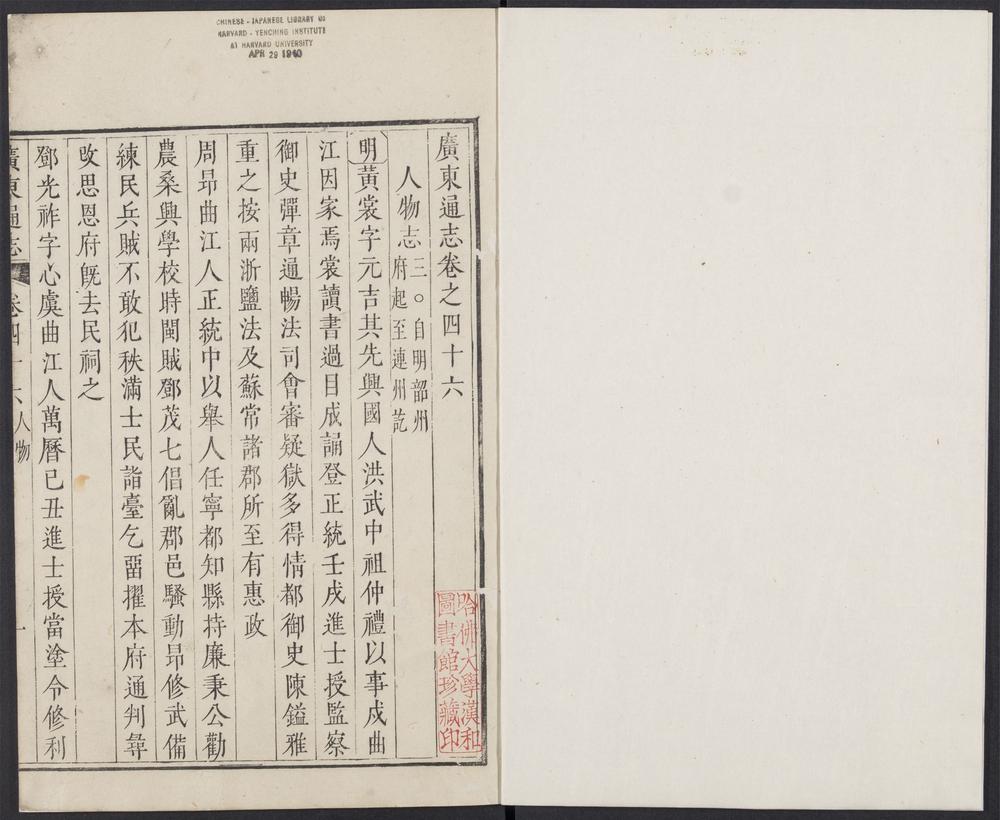 CHINESE - JAPANESE LIBRARY OF
HARVARD - YENCHING INSTITUTE
AT HARVARD UNIVERSITY
APR 29 1940
廣東通志卷之四十六
人物志三○自明韶州府起至連州訖
明黃裳字元吉其先興國人洪武中祖仲禮以事戍曲
江因家焉裳讀書過目成誦登正統壬戌進士授監察
御史彈章通暢法司會審疑獄多得情都御史陳鎰雅
重之按兩浙鹽法及蘇常諸郡所至有惠政
周昻曲江人正統中以舉人任寧都知縣持廉秉公勸
農桑興學校時閩賊鄧茂七倡亂郡邑騷動昻修武備
練民兵賊不敢犯秩滿士民詣臺乞畱擢本府通判尋
改思恩府旣去民祠之
鄧光祚字心虞曲江人萬曆己丑進士授當塗令修利
廣東通志
卷四十六人物
一
哈佛大學漢和
圖書館珍藏印